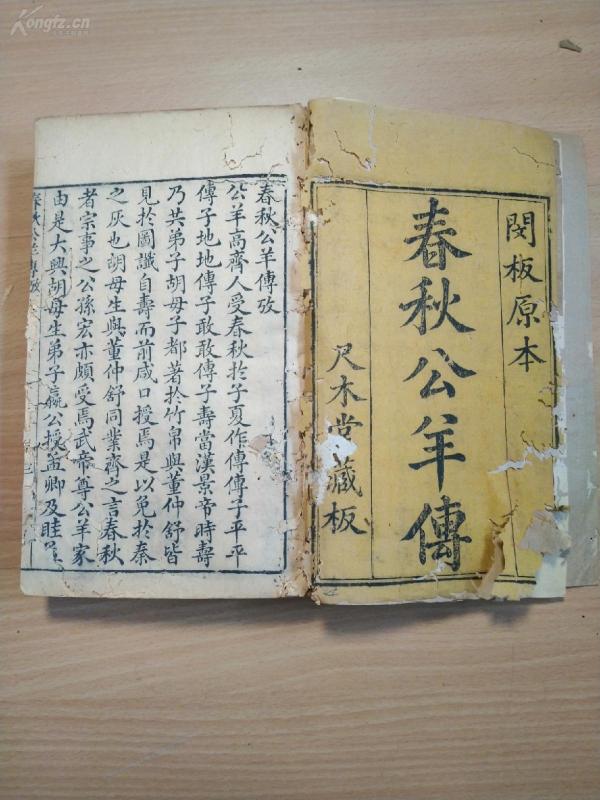 Kongfz.cn
閔板原本
春秋公羊傳
尺木堂藏板
春秋公羊傳攷
公羊高齊人受春秋於子夏作傳傳子平平
傳子地地傳子敢敢傳子壽當漢景帝時壽
乃共弟子胡母子都著於竹帛與董仲舒皆
見於圖讖自壽而前咸口授焉是以免於秦
之灰也胡母生與董仲舒同業齊之言春秋
者宗事之公孫宏亦頗受焉武帝尊公羊家
由是大興胡母生弟子嬴公授孟卿及眭
春秋公羊傳攷